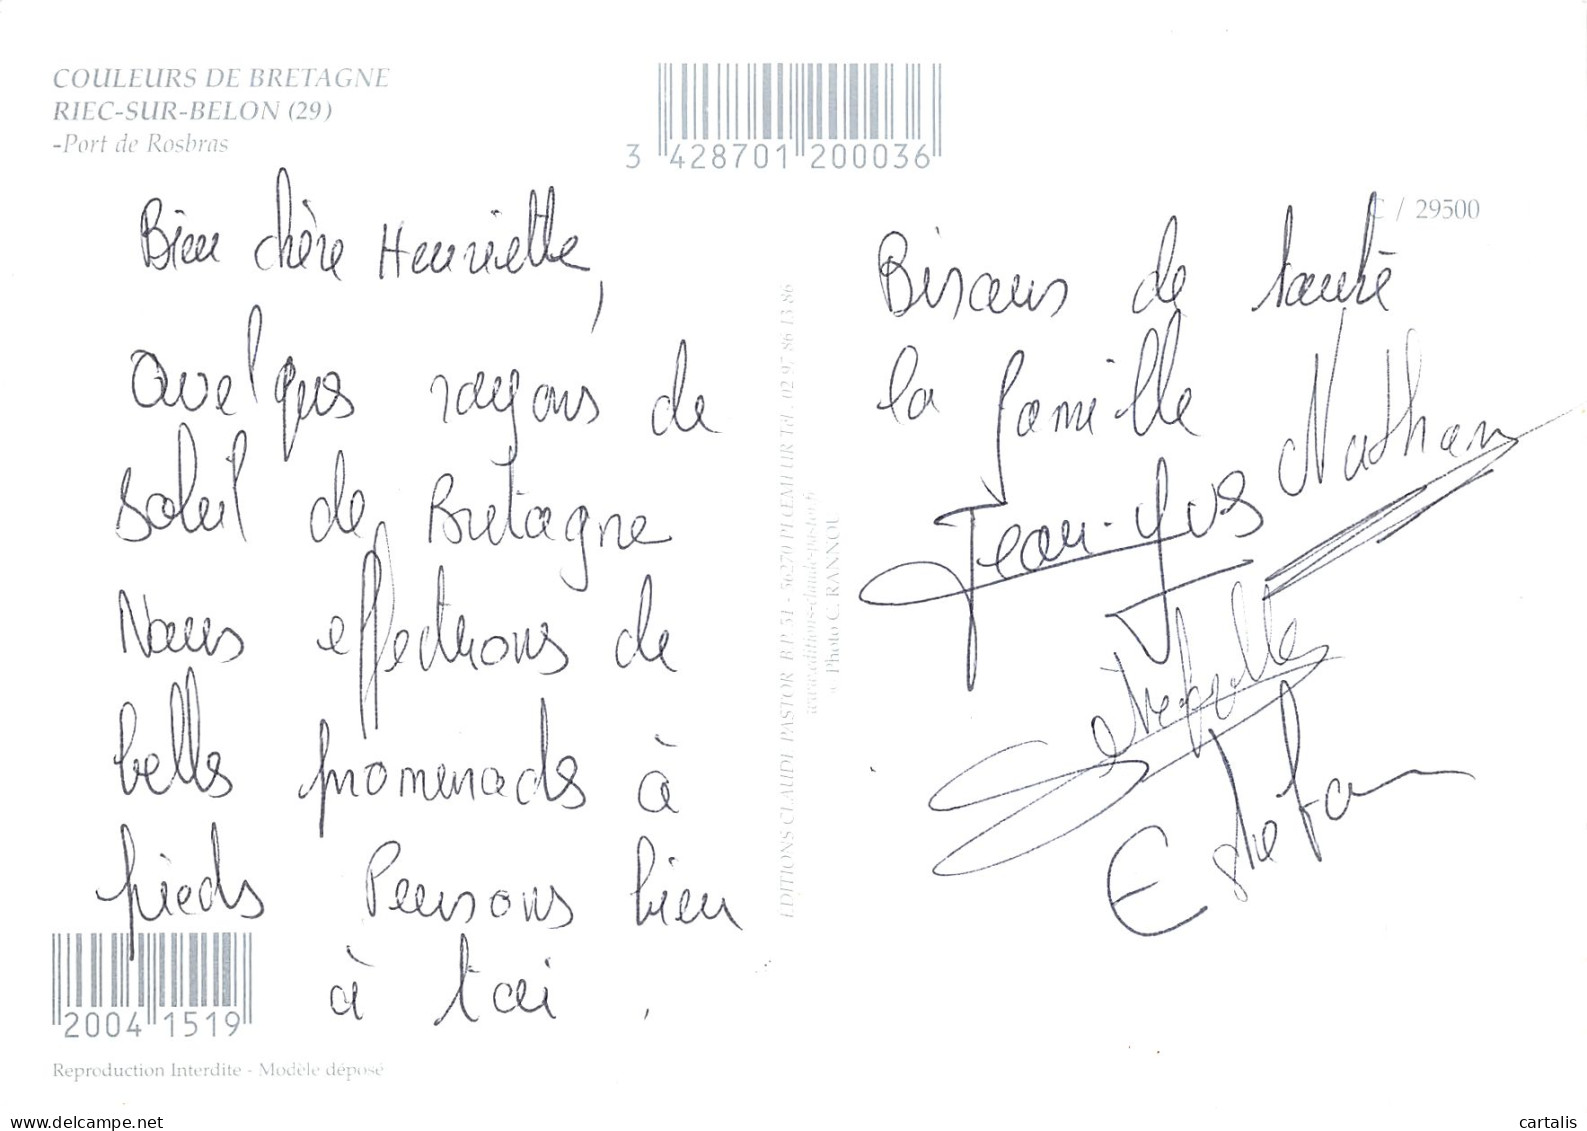 COULEURS DE BRETAGNE
RIEC-SUR-BELON (29)
-Port de Rosbras
3 428701 200036
C / 29500
Bien chère Henriette,
Quelques rayons de
soleil de Bretagne
Nous effectuons de
belles promenades à
pieds Pensons bien
à toi.
Bisous de toute
la famille
Nathan
Jean-Yves
Estefan
EDITIONS CLAUDE PASTOR B.P. 31 - 56270 PLŒMEUR Tél. 02 97 86 13 86
www.editions-claude-pastor.fr
© Photo C. RANNOU
2004 1519
Reproduction Interdite - Modèle déposé
www.delcampe.net
cartalis